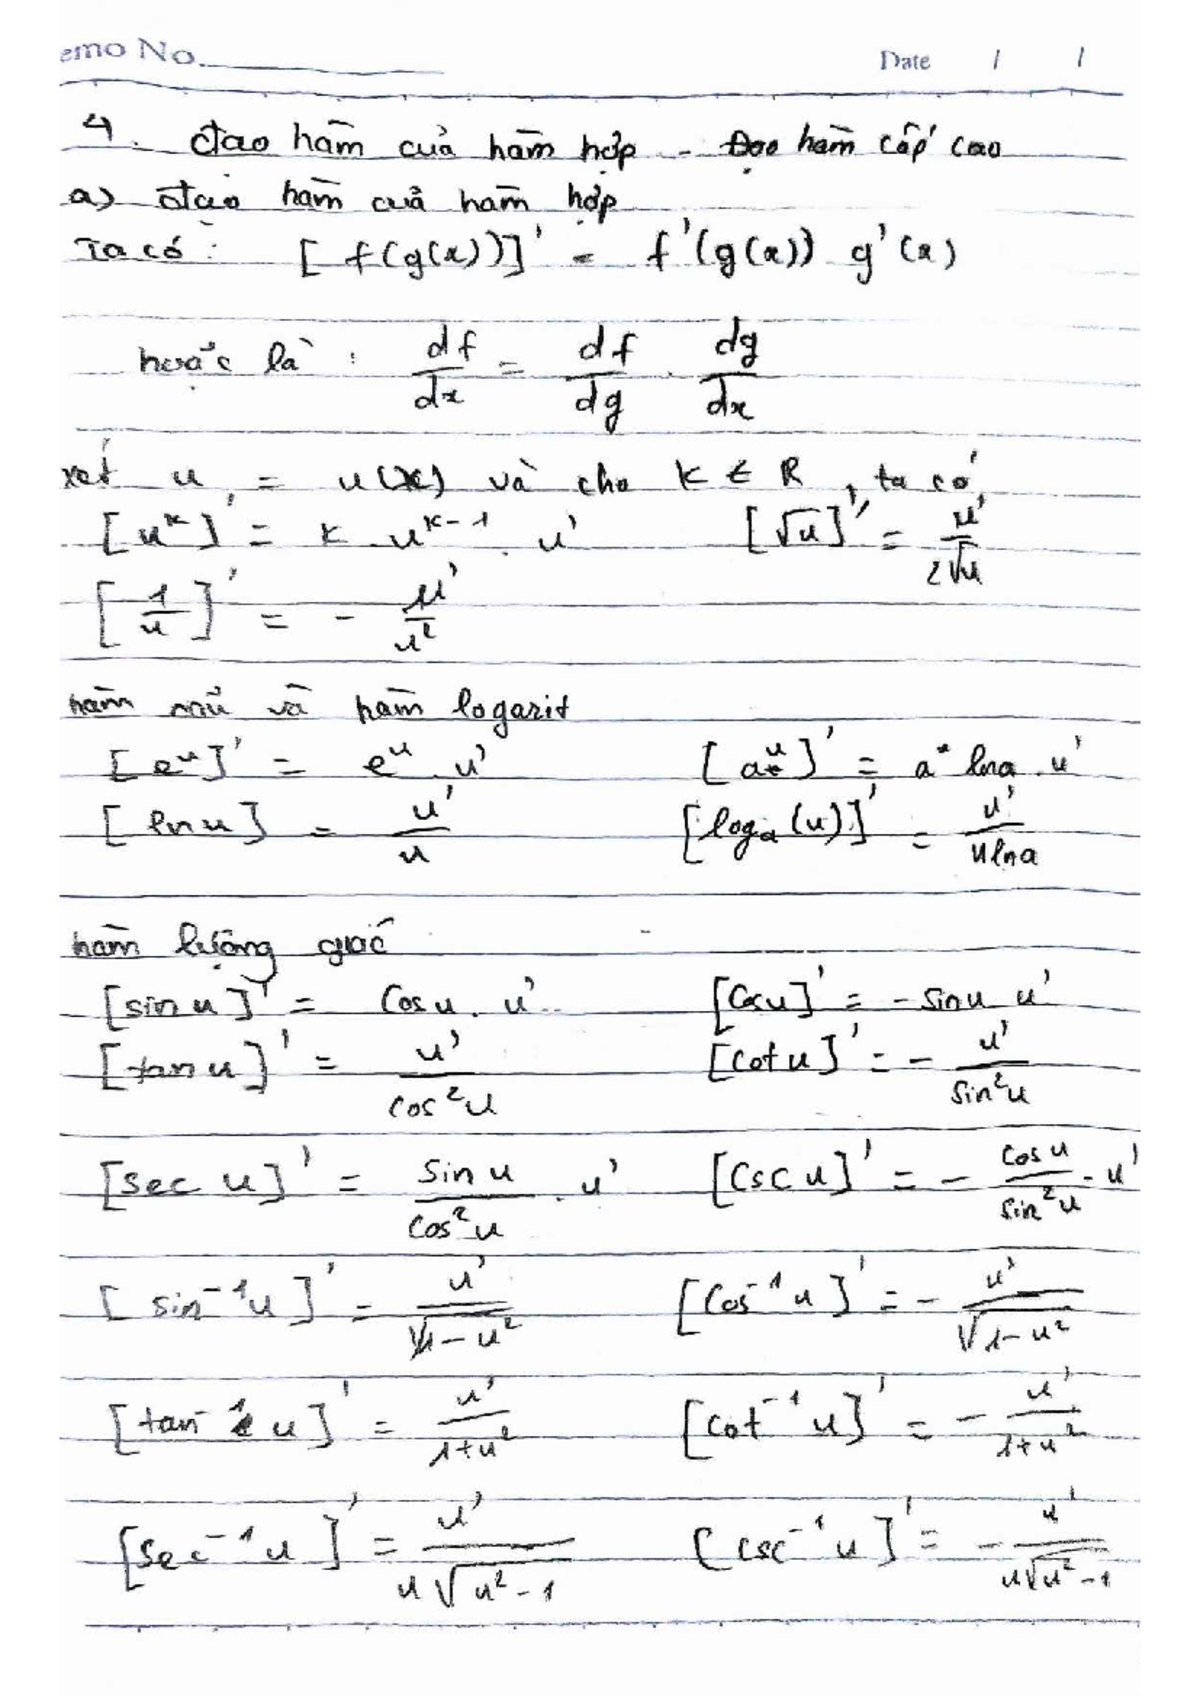 emo No.
Date / /
4. đạo hàm của hàm hợp - Đạo hàm cấp cao
a) đạo hàm của hàm hợp
Ta có: [f(g(x))]' = f'(g(x)) g'(x)
hoặc là : df/dx = df/dg . dg/dx
xét u = u(x) và cho k ∈ R, ta có
[u^k]' = k u^(k-1) . u' [√u]' = u'/(2√u)
[1/u]' = - u'/u²
hàm mũ và hàm logarit
[e^u]' = e^u . u' [a^u]' = a^x lna . u'
[ln u] = u'/u [log_a(u)]' = u'/(u lna)
hàm lượng giác
[sin u]' = Cosu . u' [Cosu]' = -sinu u'
[tan u]' = u'/cos²u [cot u]' = - u'/sin²u
[sec u]' = sin u/cos²u . u' [csc u]' = - cos u/sin²u . u'
[sin⁻¹u]' = u'/√(1-u²) [cos⁻¹u]' = - u'/√(1-u²)
[tan⁻¹ u]' = u'/(1+u²) [cot⁻¹u]' = - u'/(1+u²)
[sec⁻¹u]' = u'/(u√(u²-1)) [csc⁻¹u]' = - u'/(u√(u²-1))